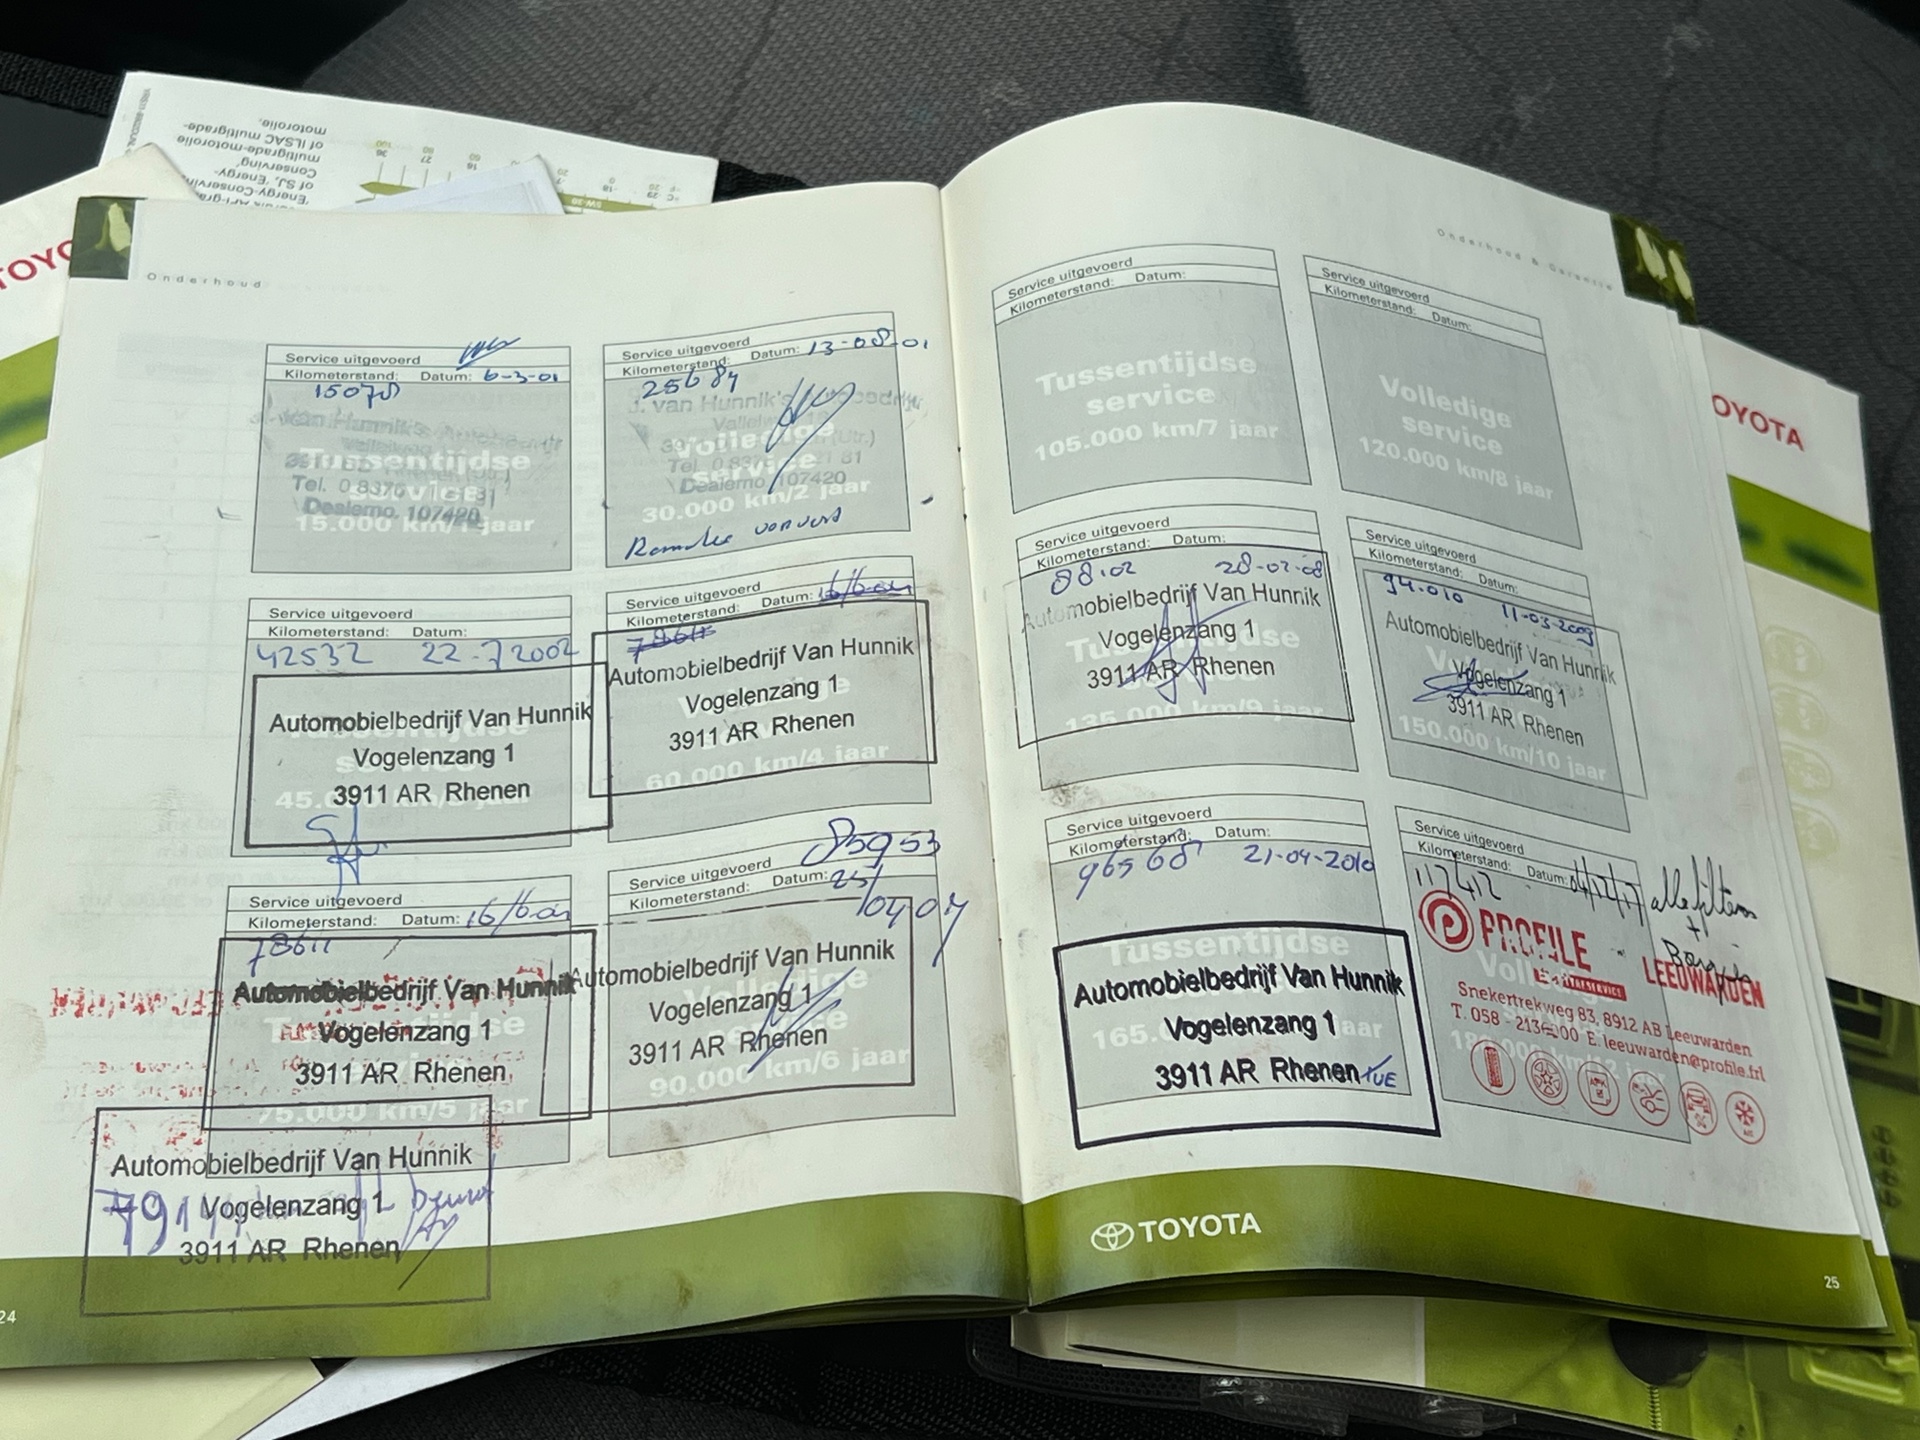 motorolie.
of ILSAC multigrade-
multigrade-motorolie
Conserving'
of SJ, 'Energy-
'Energy-Conserving
TOYO
Onderhoud
Service uitgevoerd
Kilometerstand: Datum: 6-3-01
15078
Tussentijdse
service
Dealerno. 107420
15.000 km/1 jaar
Service uitgevoerd
Kilometerstand: Datum: 13-08-01
25684
J. van Hunnik's Autobedrijf
Volledige
service
Dealerno. 107420
30.000 km/2 jaar
Service uitgevoerd
Kilometerstand: Datum:
42532 22-7 2002
Automobielbedrijf Van Hunnik
Vogelenzang 1
3911 AR Rhenen
Service uitgevoerd
Kilometerstand: Datum:
Automobielbedrijf Van Hunnik
Vogelenzang 1
3911 AR Rhenen
60.000 km/4 jaar
Service uitgevoerd
Kilometerstand: Datum:
78611
Automobielbedrijf Van Hunnik
Vogelenzang 1
3911 AR Rhenen
75.000 km/5 jaar
Service uitgevoerd
85953
Kilometerstand: Datum:
Automobielbedrijf Van Hunnik
Vogelenzang 1
3911 AR Rhenen
90.000 km/6 jaar
Automobielbedrijf Van Hunnik
Vogelenzang 1
3911 AR Rhenen
24
Onderhoud & Garantie
Service uitgevoerd
Kilometerstand: Datum:
Tussentijdse
service
105.000 km/7 jaar
Service uitgevoerd
Kilometerstand: Datum:
Volledige
service
120.000 km/8 jaar
Service uitgevoerd
Kilometerstand: Datum:
88.02 28-02-08
Automobielbedrijf Van Hunnik
Vogelenzang 1
Tussentijdse
3911 AR Rhenen
135.000 km/9 jaar
Service uitgevoerd
Kilometerstand: Datum:
94.010 11-03-2009
Automobielbedrijf Van Hunnik
Vogelenzang 1
3911 AR Rhenen
150.000 km/10 jaar
Service uitgevoerd
Kilometerstand: Datum:
96568 21-04-2010
Tussentijdse
Automobielbedrijf Van Hunnik
Vogelenzang 1
165.000 jaar
3911 AR Rhenen
Service uitgevoerd
Kilometerstand: Datum: 04/12/17
117412
alle filters
+
PROFILE
LEEUWARDEN
Snekertrekweg 83, 8912 AB Leeuwarden
E. leeuwarden@profile.frl
TOYOTA
25
OYOTA